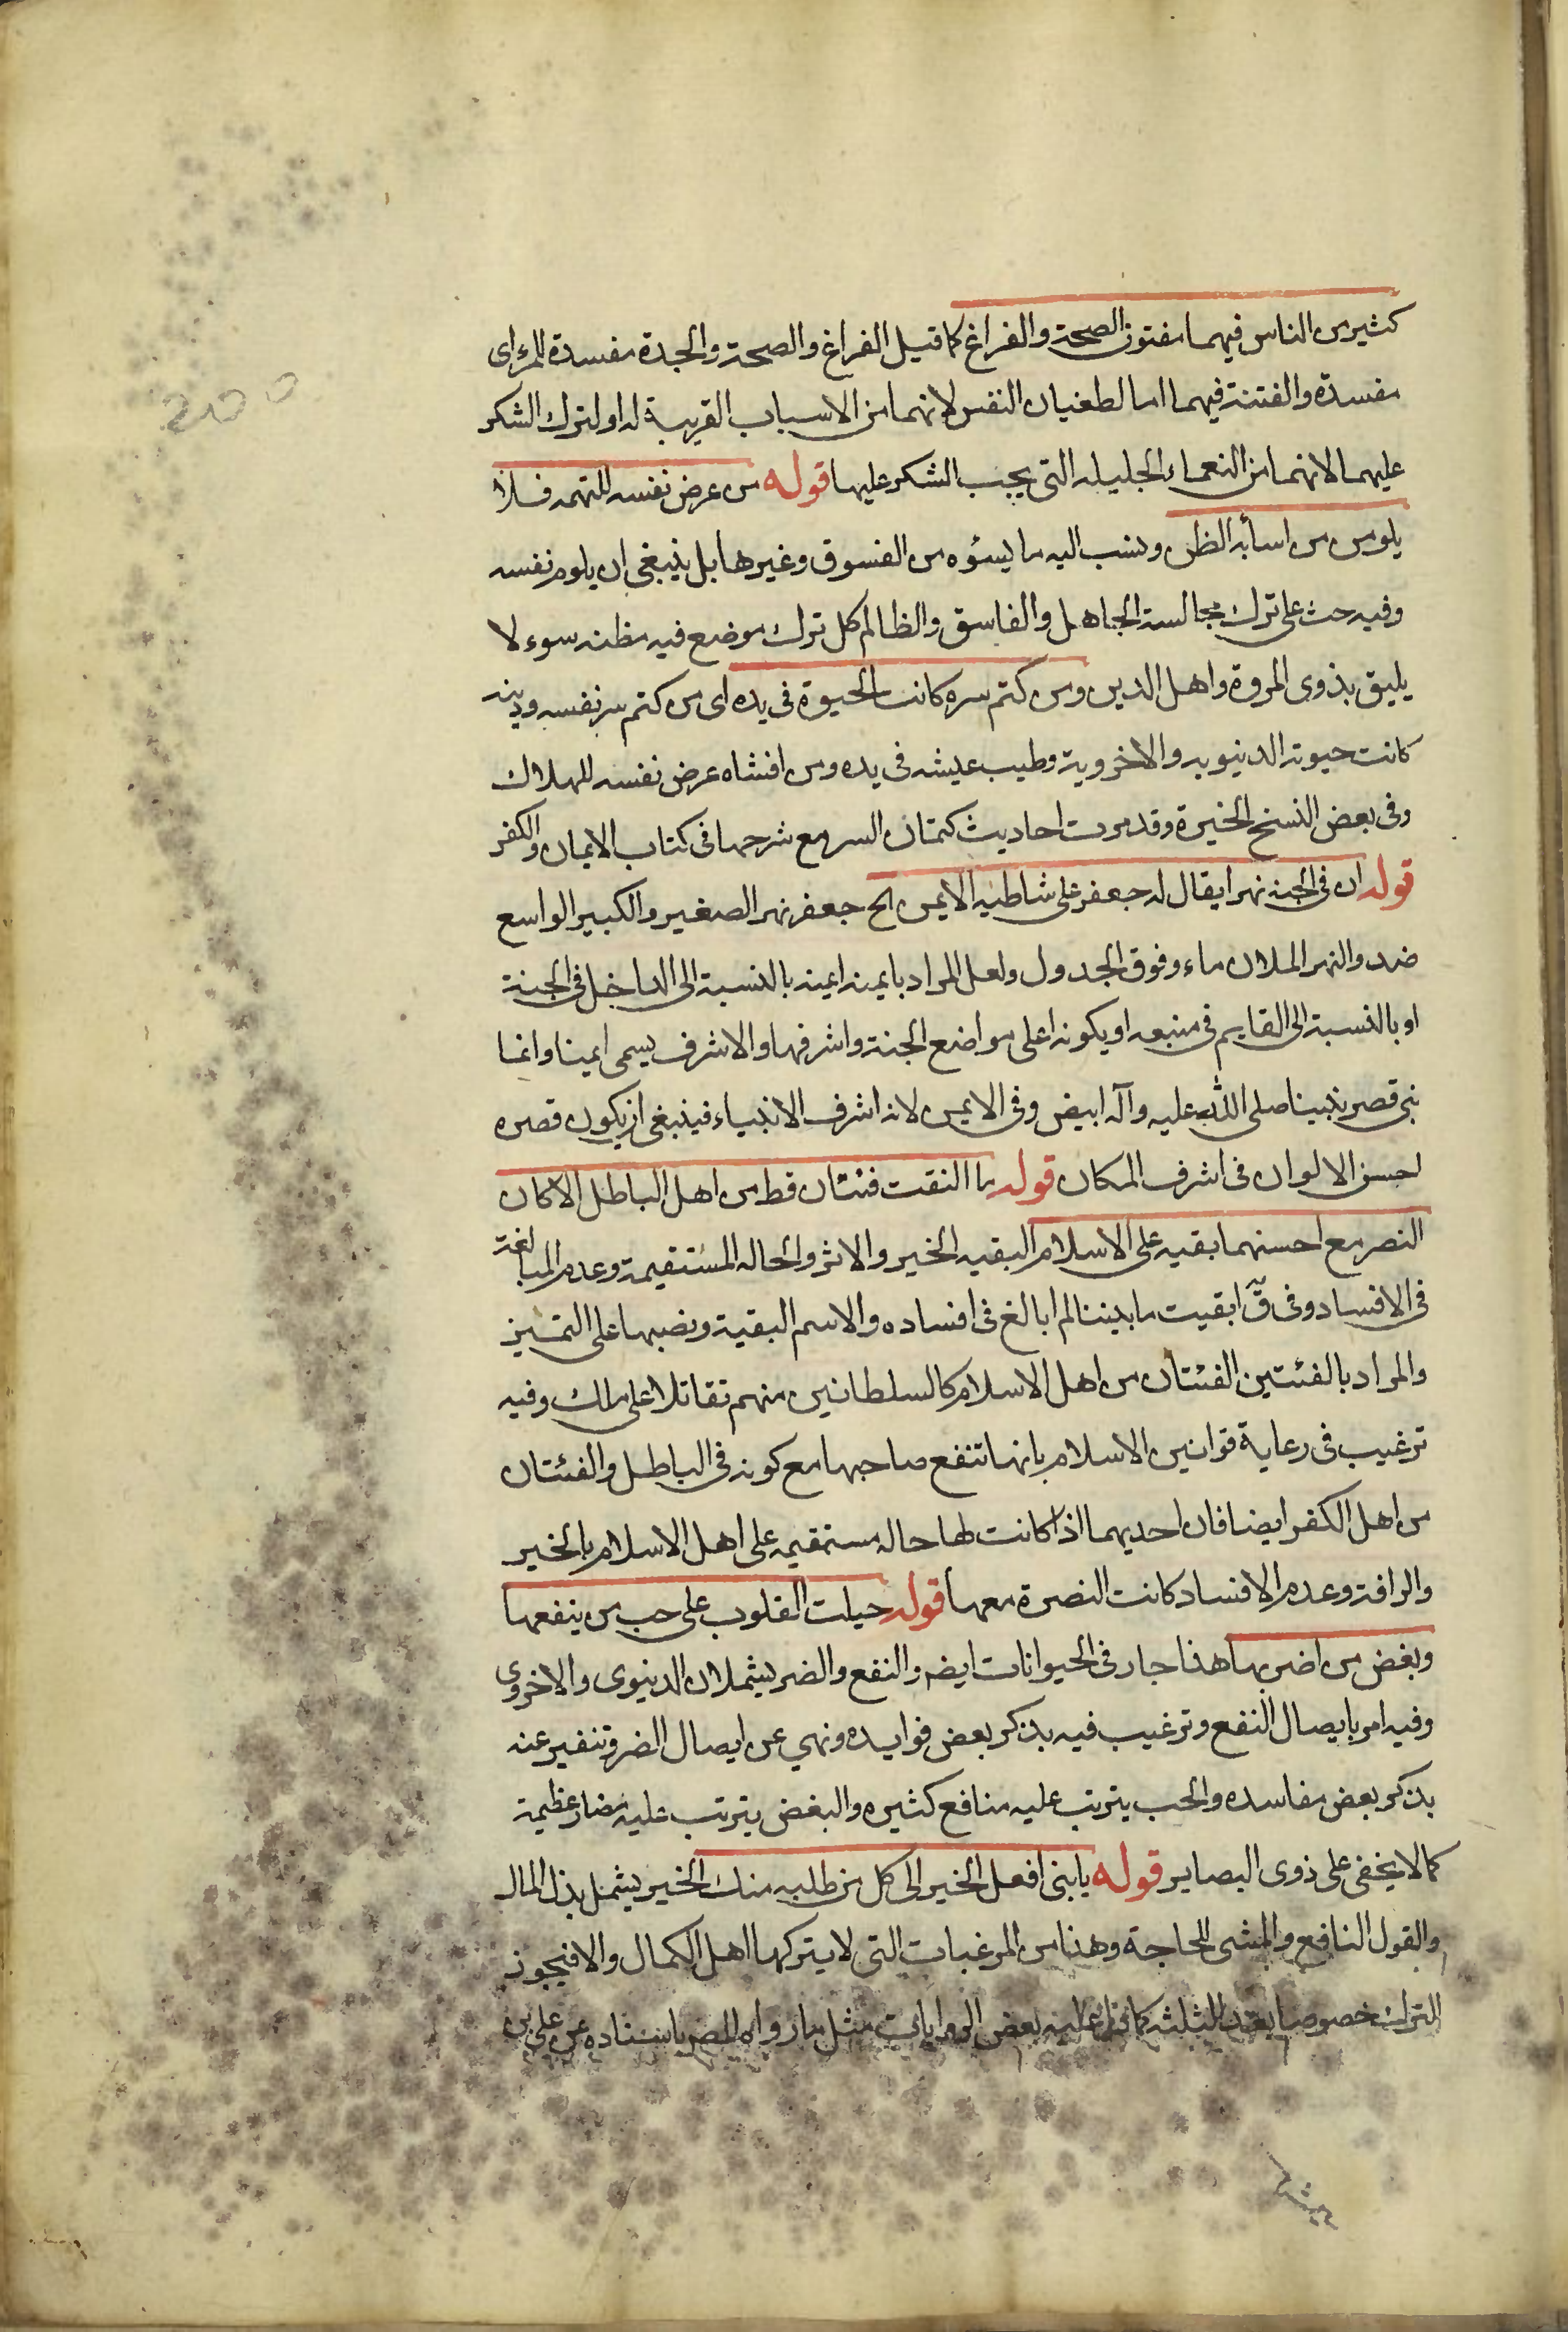 كثير من الناس فيهما مفتون الصحة والفراغ كما قيل الفراغ والصحة والجدة مفسدة للمرء اى
مفسدة والفتنة فيهما اما لطغيان النفس لانهما من الاسباب القريبة له او لترك الشكر
عليهما لانهما من النعماء الجليله التى يجب الشكر عليها قوله من عرض نفسه للتهمه فلا
يلومن من اساء به الظن ونسب اليه ما يسئوه من الفسوق وغيرها بل ينبغى ان يلوم نفسه
وفيه حث على ترك مجالسة الجاهل والفاسق والظالم كل ترك موضع فيه مظنه سوء لا
يليق بذوى المروة واهل الدين ومن كتم سره كانت الحيوة فى يده اى من كتم سر نفسه ودينه
كانت حيوته الدنيويه والاخروية وطيب عيشه فى يده ومن افشاه عرض نفسه للهلاك
وفى بعض النسخ الخيرة وقد مرت احاديث كتمان السر مع شرحها فى كتاب الايمان والكفر
قوله ان فى الجنه نهرا يقال له جعفر على شاطيه الايمن الخ جعفر نهر الصغير والكبير الواسع
ضد والنهر الملان ماء وفوق الجدول ولعل المراد بايمنه ايمنه بالنسبة الى الداخل فى الجنة
او بالنسبة الى القايم فى منبعه او يكونه اعلى مواضع الجنة واشرفها والاشرف يسمى ايمنا وانما
بنى قصر نبينا صلى الله عليه وآله ابيض وفى الايمن لانه اشرف الانبياء فينبغى ان يكون قصره
احسن الالوان فى اشرف المكان قوله ما التقت فئتان قط من اهل الباطل الا كان
النصر مع احسنهما بقيه على الاسلام البقيه الخير والاثر والحاله المستقيمة وعدم المبالغة
فى الافساد وفى ق ابقيت ما بيننا لم ابالغ فى افساده والاسم البقية ونصبها على التميز
والمراد بالفئتين الفئتان من اهل الاسلام كالسلطانين منهم تقاتلا على ملك وفيه
ترغيب فى رعاية قوانين الاسلام بانها تنفع صاحبها مع كونه فى الباطل والفئتان
من اهل الكفر ايضا فان احديهما اذا كانت لها حاله مستقيمه على اهل الاسلام بالخير
والرافة وعدم الافساد كانت النصرة معها قوله جبلت القلوب على حب من ينفعها
وبغض من اضر بها هذا جار فى الحيوانات ايضه والنفع والضر يشملان الدنيوى والاخروى
وفيه امر بايصال النفع وترغيب فيه بذكر بعض فوايده ونهي عن ايصال الضر وتنفير عنه
بذكر بعض مفاسده والحب يترتب عليه منافع كثيره والبغض يترتب عليه مضار عظيمة
كما لا يخفى على ذوى البصاير قوله يا بنى افعل الخير الى كل من طلبه منك الخير يشمل بذل المال
والقول النافع والمشى للحاجة وهذا من المرغبات التى لا يتركها اهل الكمال والا فيجوز
الترك خصوصا بعد الثلثه كما دل عليه بعض الروايات مثل ما رواه المص باسناده عن على بن